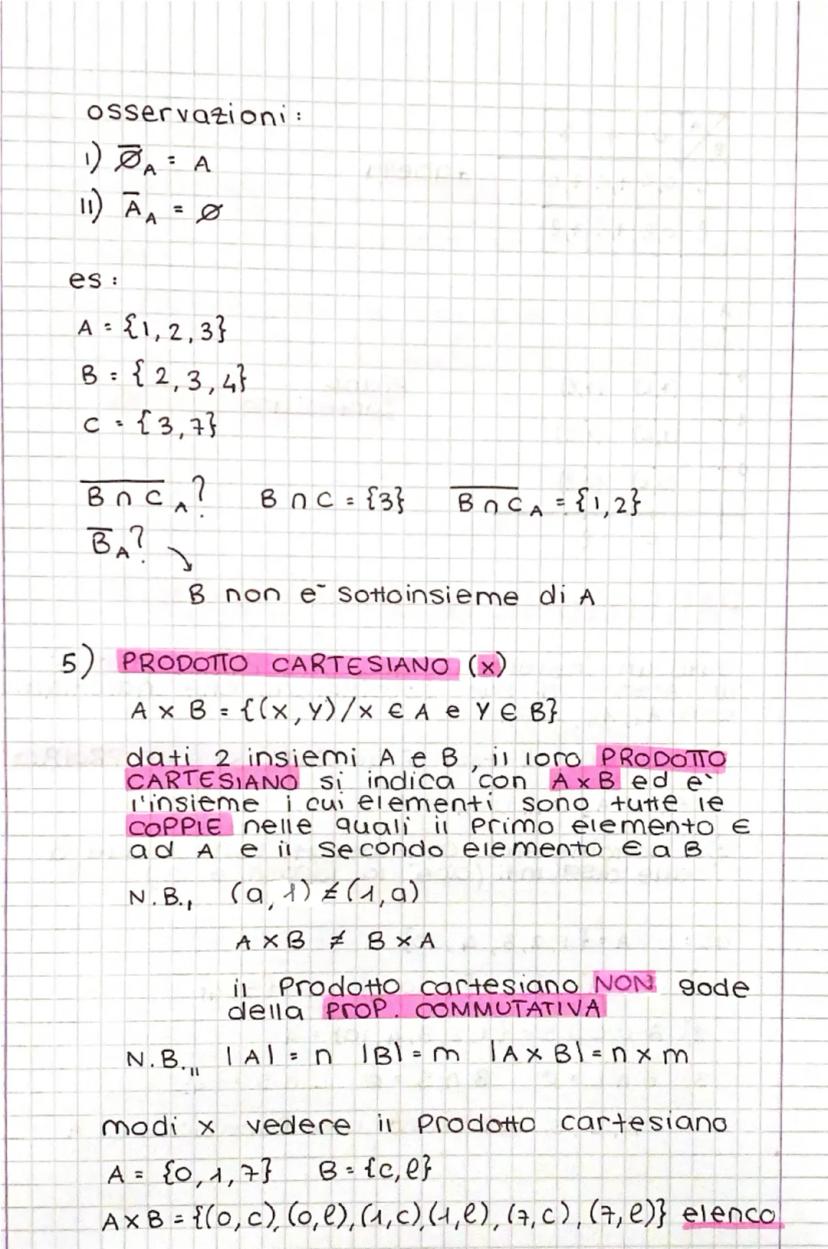 osservazioni:
I) ∅̅_A = A
II) A̅_A = ∅
es:
A = {1, 2, 3}
B = {2, 3, 4}
C = {3, 7}
B∩C̅_A? B ∩ C = {3} B∩C̅_A = {1, 2}
B̅_A?
B non e‾ sottoinsieme di A
5) PRODOTTO CARTESIANO (x)
A x B = {(x, y)/x ∈ A e y ∈ B}
dati 2 insiemi A e B, il loro PRODOTTO
CARTESIANO si indica con A x B ed e`
l'insieme i cui elementi sono tutte le
COPPIE nelle quali il primo elemento ∈
ad A e il secondo elemento ∈ a B
N.B.I (a, 1) ≠ (1, a)
A x B ≠ B x A
il Prodotto cartesiano NON gode
della PROP. COMMUTATIVA
N.B.II |A| = n |B| = m |A x B| = n x m
modi x vedere il Prodotto cartesiano
A = {0, 1, 7} B = {c, e}
A x B = {(0, c), (0, e), (1, c), (1, e), (7, c), (7, e)} elenco